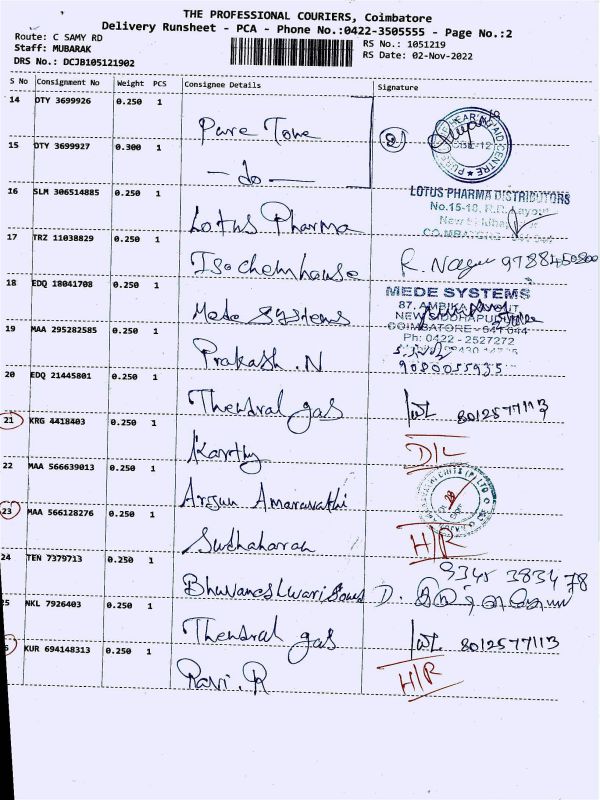 THE PROFESSIONAL COURIERS, Coimbatore
Delivery Runsheet - PCA - Phone No.:0422-3505555 - Page No.:2
Route: C SAMY RD
RS No.: 1051219
Staff: MUBARAK
RS Date: 02-Nov-2022
DRS No.: DCJB105121902
S No Consignment No Weight PCS Consignee Details Signature
14 DTY 3699926 0.250 1
Pure Tone
15 DTY 3699927 0.300 1
-do-
16 SLM 306514885 0.250 1
Lotus Pharma
LOTUS PHARMA DISTRIBUTORS
No.15-18, R.R. Layout
17 TRZ 11038829 0.250 1
Isochemhouse
18 EDQ 18041708 0.250 1
Mede Systems
MEDE SYSTEMS
87, AMBIKA
NEW SIDDHAPUDUR
COIMBATORE - 641 044
Ph: 0422 - 2527272
19 MAA 295282585 0.250 1
Prakash .N
9080055935
20 EDQ 21445801 0.250 1
Thendral gas
8012577113
21 KRG 4418403 0.250 1
Karthy
D/L
22 MAA 566639013 0.250 1
Arjun Amaravathi
23 MAA 566128276 0.250 1
Sudhaharan
H/R
24 TEN 7379713 0.250 1
9345 383478
Bhuvaneshwari
D.
25 NKL 7926403 0.250 1
Thendral gas
8012577113
KUR 694148313 0.250 1
Ravi. R
H/R